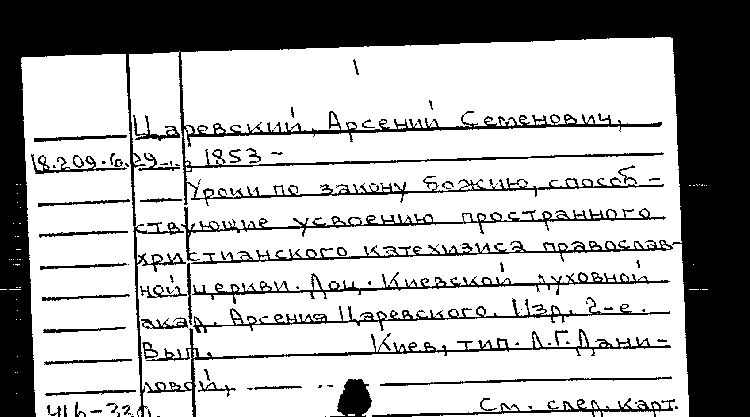 1
Царевский, Арсений Семенович,
18.209.6.29 1853 -
Уроки по закону божию, способ-
ствующие усвоению пространного
христианского катехизиса православ-
ной церкви. Доц. Киевской духовной
акад. Арсения Царевского. Изд. 2-е.
Вып. Киев, тип. Л.Г. Дани-
ловой,
См. след. карт.